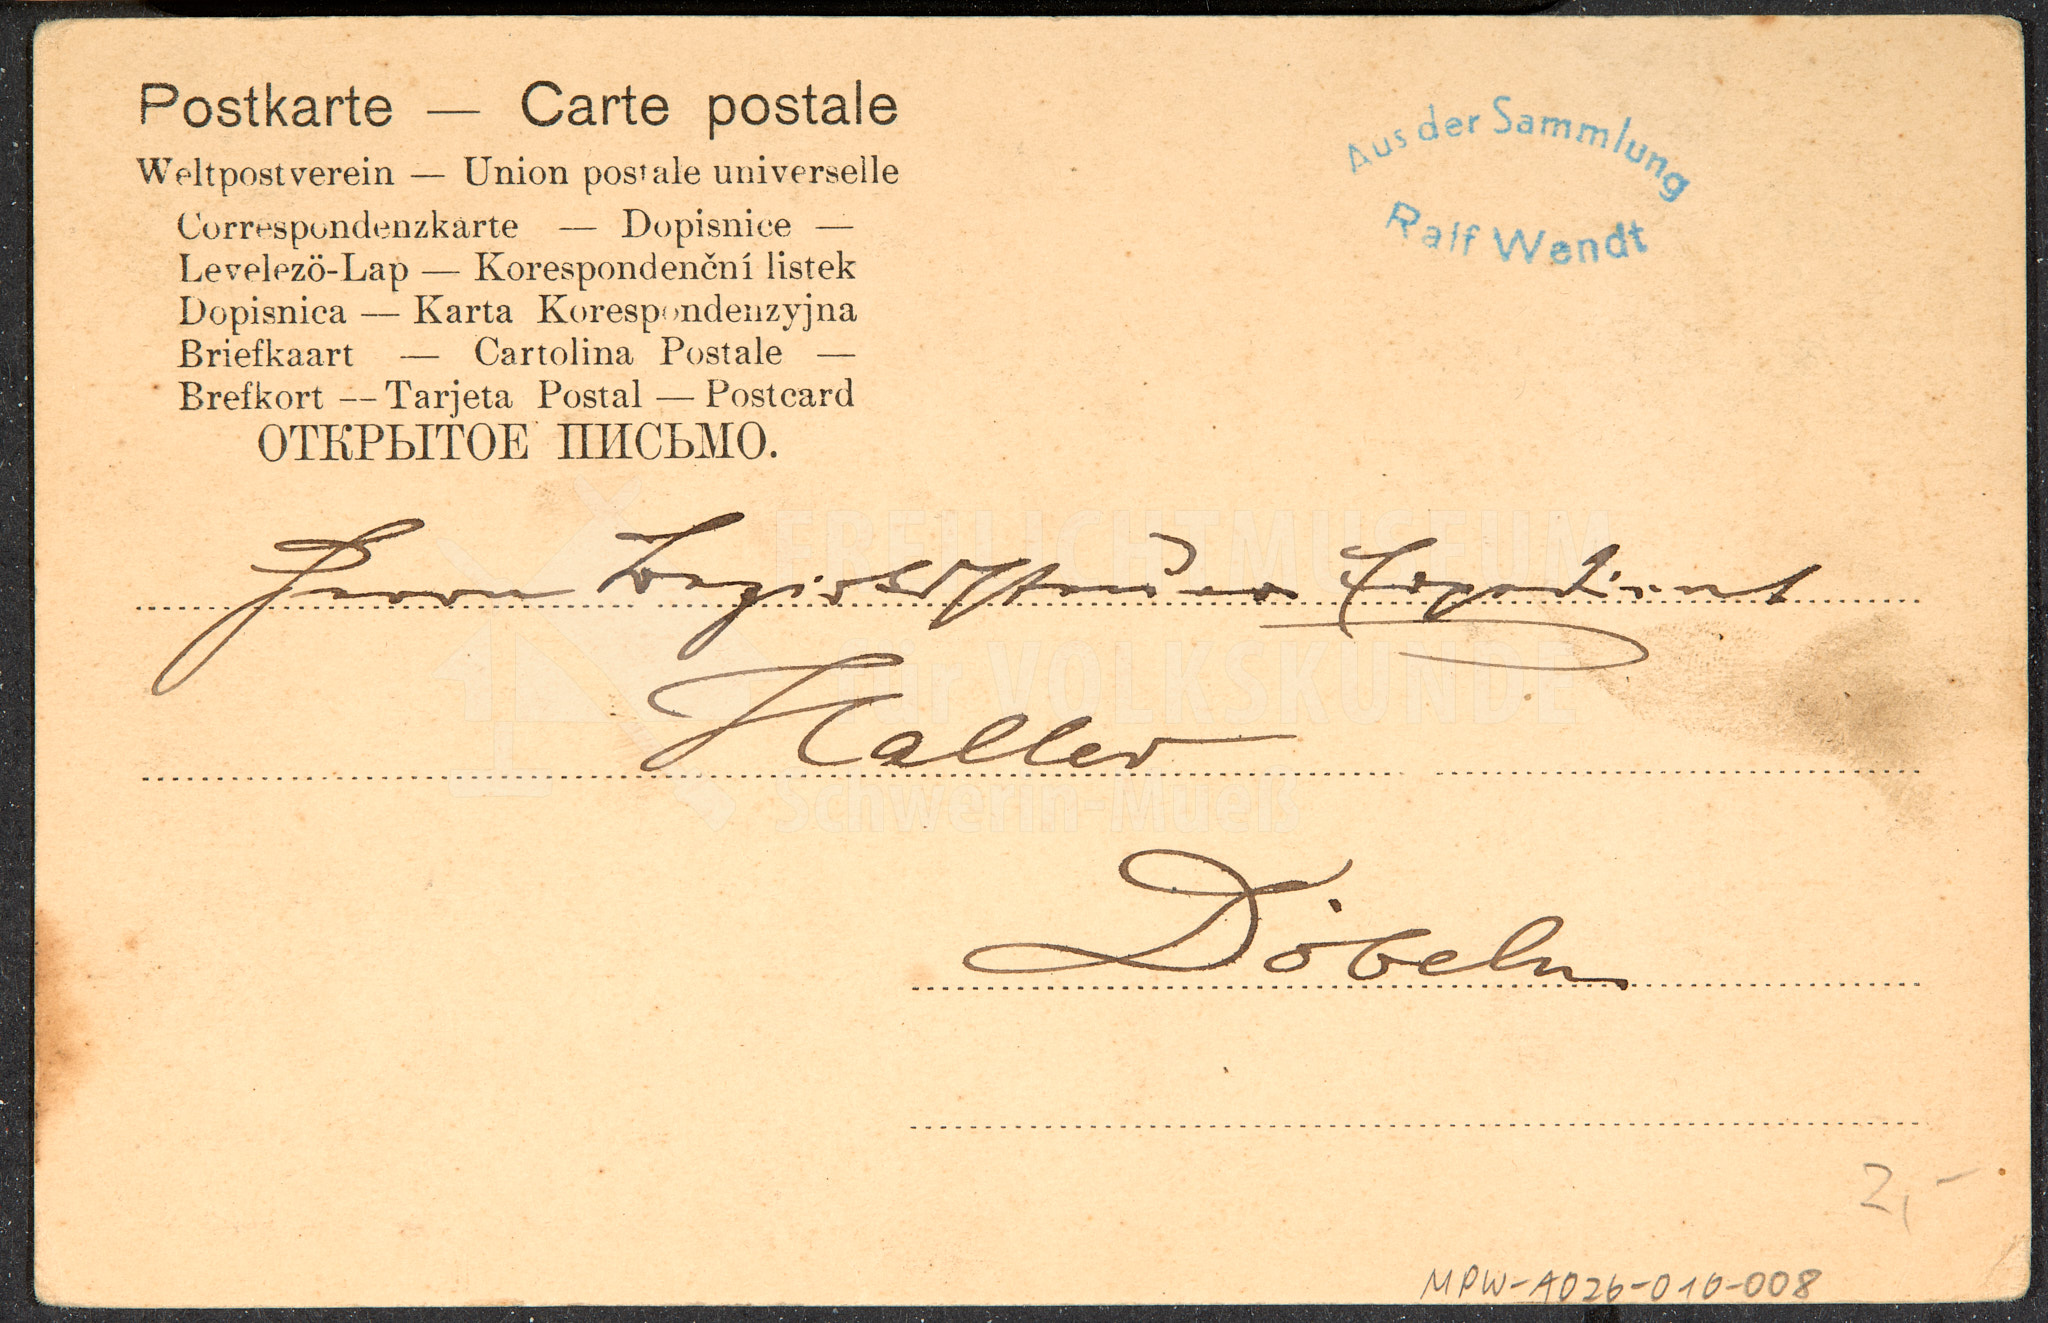 Postkarte — Carte postale
Weltpostverein — Union postale universelle
Correspondenzkarte — Dopisnice —
Levelezö-Lap — Korespondenční listek
Dopisnica — Karta Korespondenzyjna
Briefkaart — Cartolina Postale —
Brefkort — Tarjeta Postal — Postcard
ОТКРЫТОЕ ПИСЬМО.
Aus der Sammlung
Ralf Wendt
Herrn Bezirkssteuer Expedient
Haller
Döbeln
FREILICHTMUSEUM
für VOLKSKUNDE
Schwerin-Mueß
2,-
MPW-A026-010-008